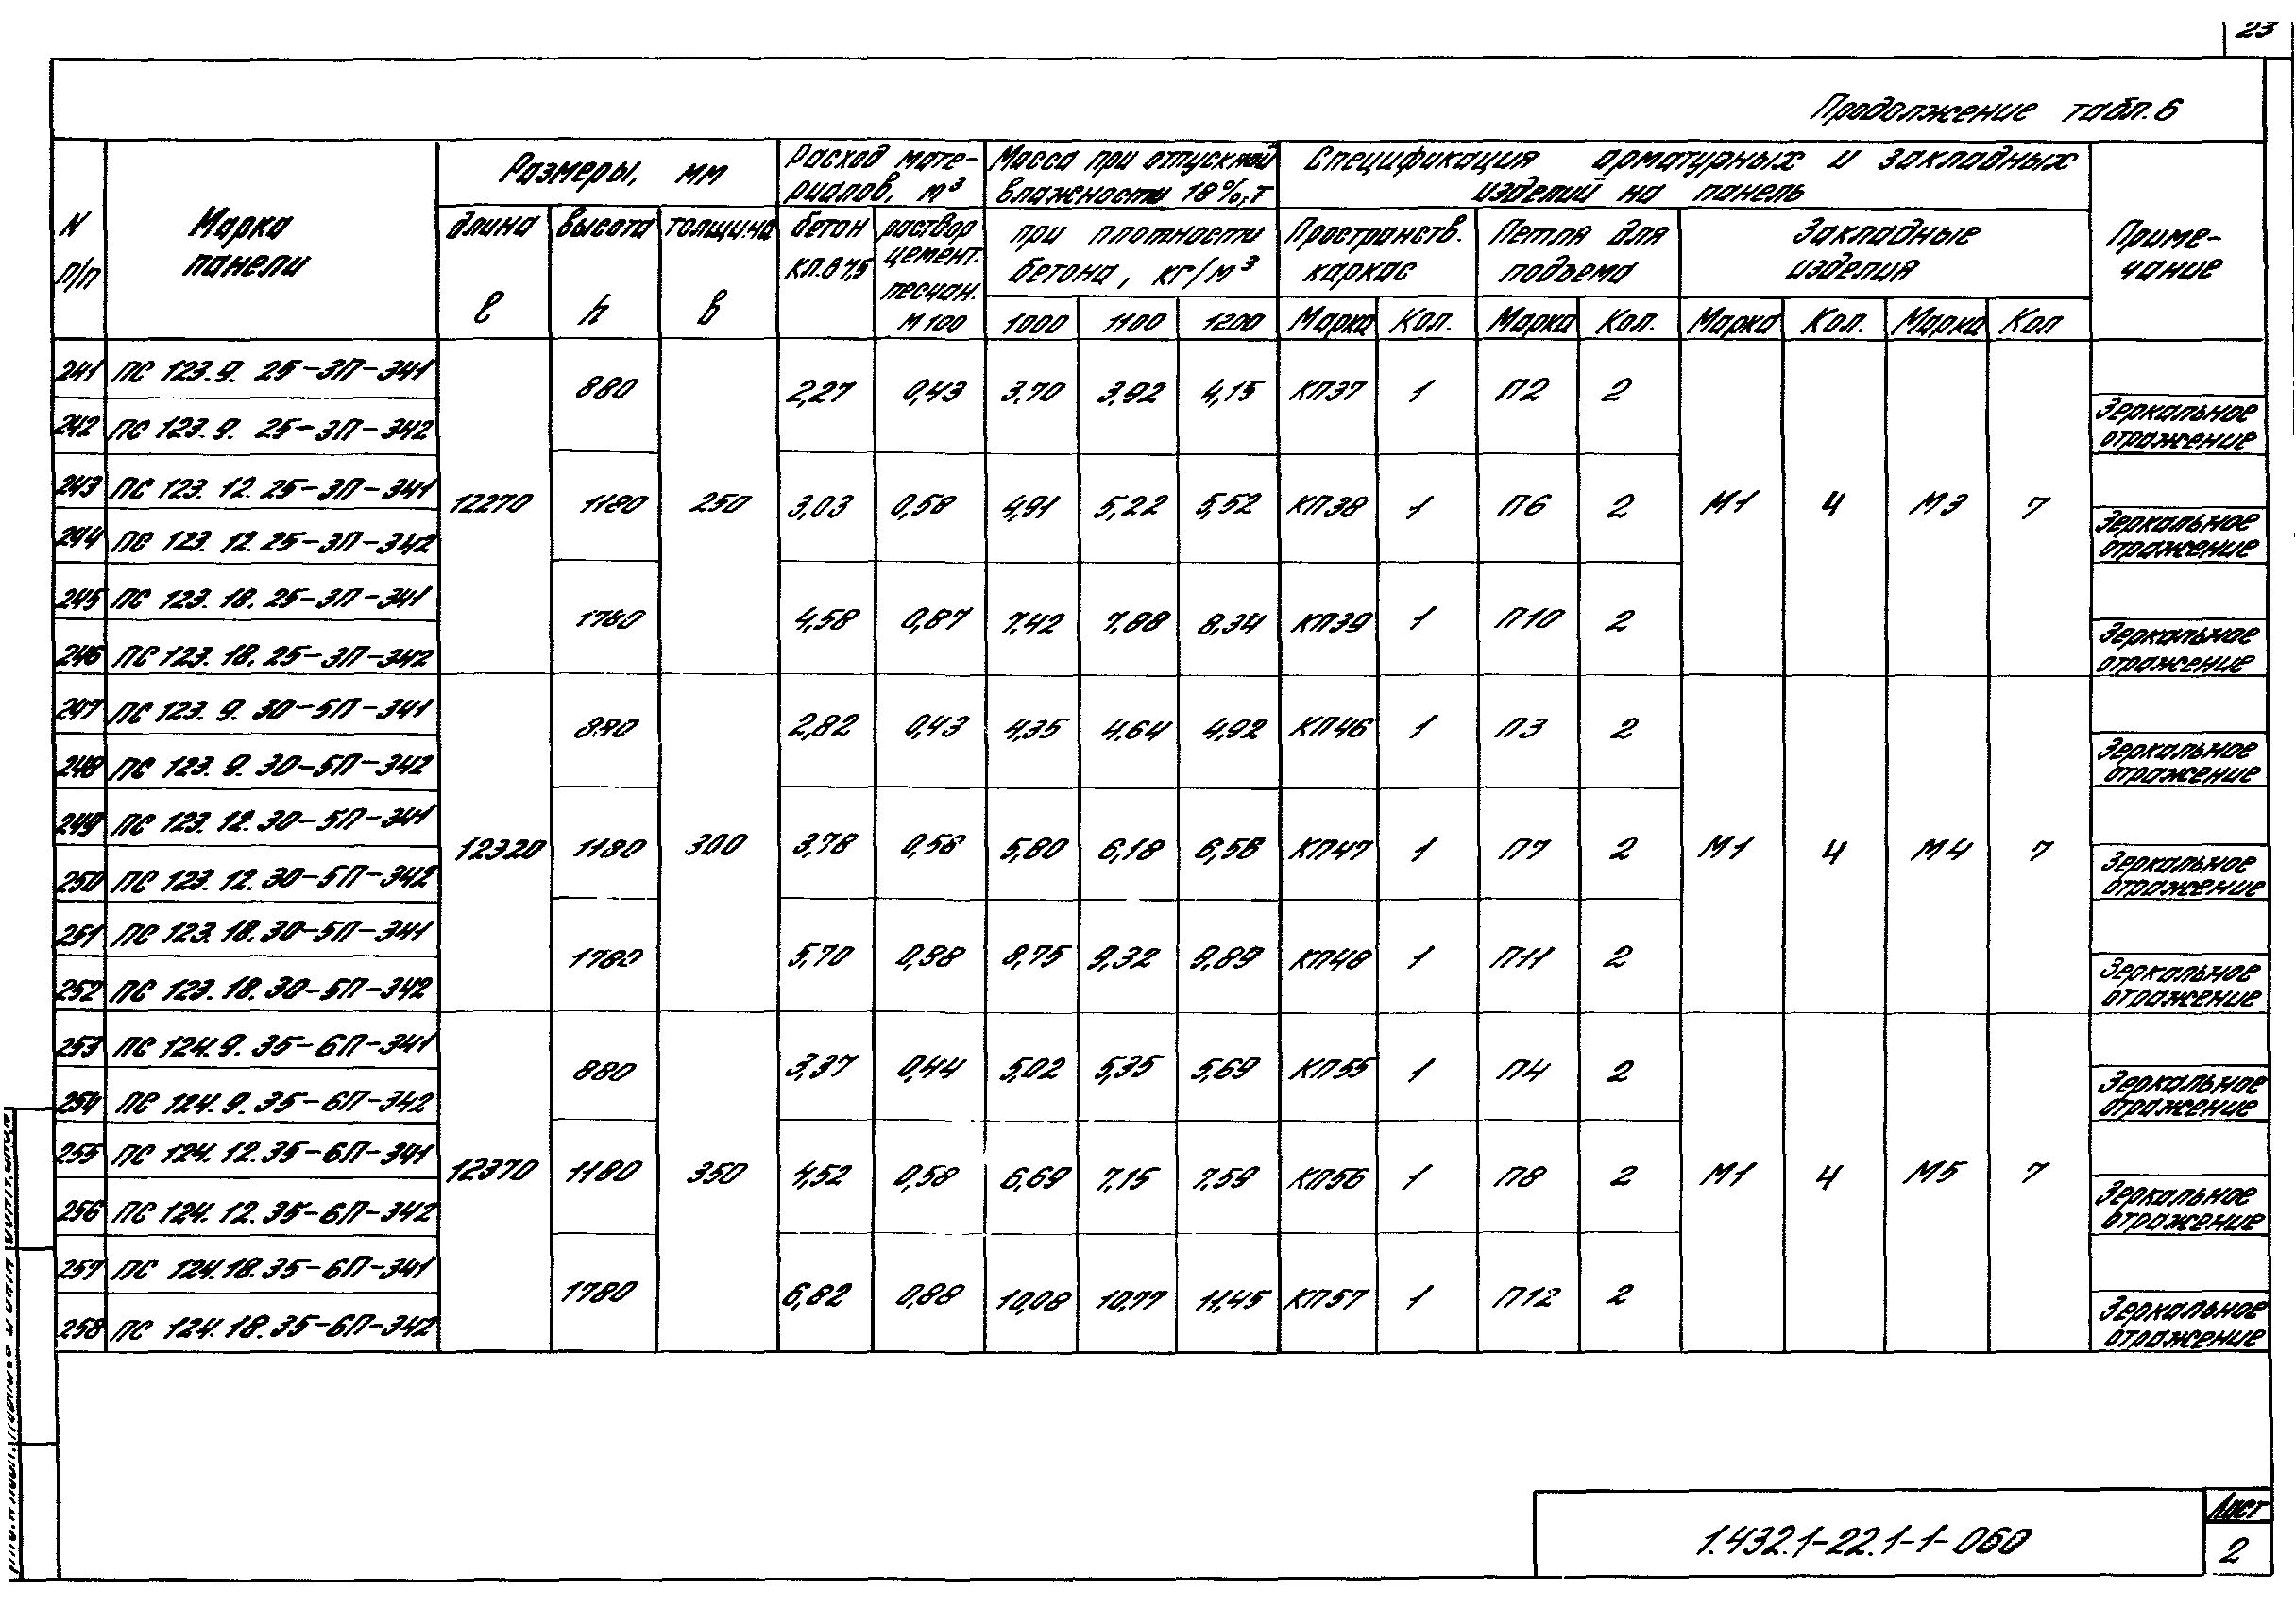 23
Продолжение табл. 6
N п/п
Марка панели
Размеры, мм
длина l
высота h
толщина b
Расход материалов, м³
бетон кл. В 7,5
раствор цемент. песчан. М 100
Масса при отпускной влажности 18%, т
при плотности бетона, кг/м³
1000 1100 1200
Спецификация арматурных и закладных изделий на панель
Пространств. каркас
Петля для подъема
Закладные изделия
Марка Кол. Марка Кол. Марка Кол. Марка Кол
Примечание
241 ПС 123.9. 25-3П-341
880 2,27 0,43 3.70 3.92 4,15 КП37 1 П2 2
242 ПС 123.9. 25-3П-342 Зеркальное отражение
243 ПС 123.12.25-3П-341
12270 1180 250 3,03 0,58 4,91 5,22 5,52 КП38 1 П6 2 М1 4 М3 7
244 ПС 123.12.25-3П-342 Зеркальное отражение
245 ПС 123.18.25-3П-341
1780 4,58 0,87 7,42 7,88 8,34 КП39 1 П10 2
246 ПС 123.18.25-3П-342 Зеркальное отражение
247 ПС 123.9.30-5П-341
880 2,82 0,43 4,35 4,64 4,92 КП46 1 П3 2
248 ПС 123.9.30-5П-342 Зеркальное отражение
249 ПС 123.12.30-5П-341
12320 1180 300 3,78 0,58 5,80 6,18 6,56 КП47 1 П7 2 М1 4 М4 7
250 ПС 123.12.30-5П-342 Зеркальное отражение
251 ПС 123.18.30-5П-341
1780 5,70 0,88 8,75 9,32 9,89 КП48 1 П11 2
252 ПС 123.18.30-5П-342 Зеркальное отражение
253 ПС 124.9.35-6П-341
880 3,37 0,44 5,02 5,35 5,69 КП55 1 П4 2
254 ПС 124.9.35-6П-342 Зеркальное отражение
255 ПС 124.12.35-6П-341
12370 1180 350 4,52 0,58 6,69 7,15 7,59 КП56 1 П8 2 М1 4 М5 7
256 ПС 124.12.35-6П-342 Зеркальное отражение
257 ПС 124.18.35-6П-341
1780 6,82 0,88 10,08 10,77 11,45 КП57 1 П12 2
258 ПС 124.18.35-6П-342 Зеркальное отражение
1.432.1-22.1-1-060
Лист
2